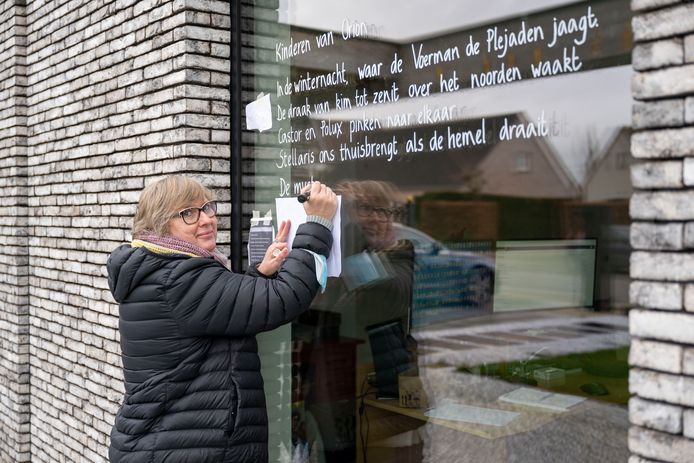 Kinderen van Orion
In de winternacht, waar de Voerman de Plejaden jaagt.
De draak van kim tot zenit over het noorden waakt
Castor en Polux pinken naar elkaar
Stellaris ons thuisbrengt als de hemel draait
De